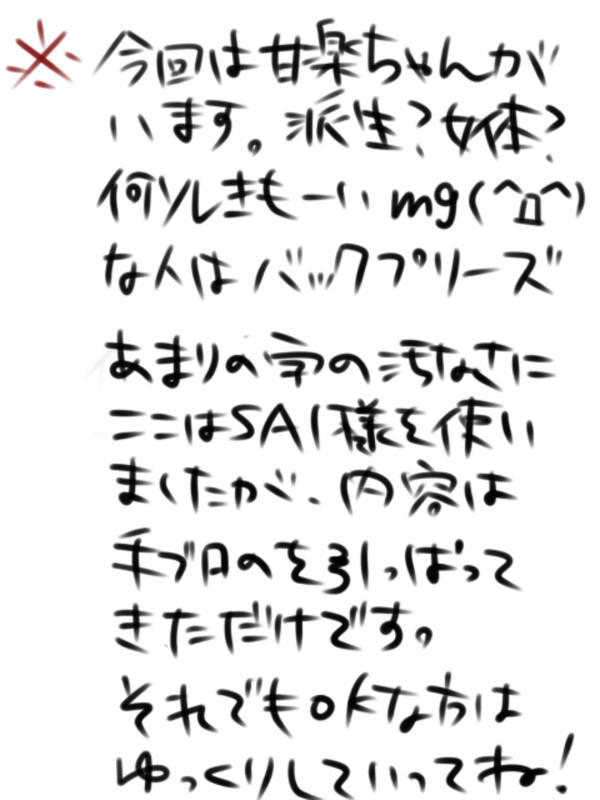 ※今回は甘楽ちゃんが
います。派生?女体?
何ソレきもーいmg(^Д^)
な人はバックプリーズ
あまりの字の汚なさに
ここはSAI様を使い
ましたが、内容は
手ブロのを引っぱって
きただけです。
それでもOKな方は
ゆっくりしていってね!